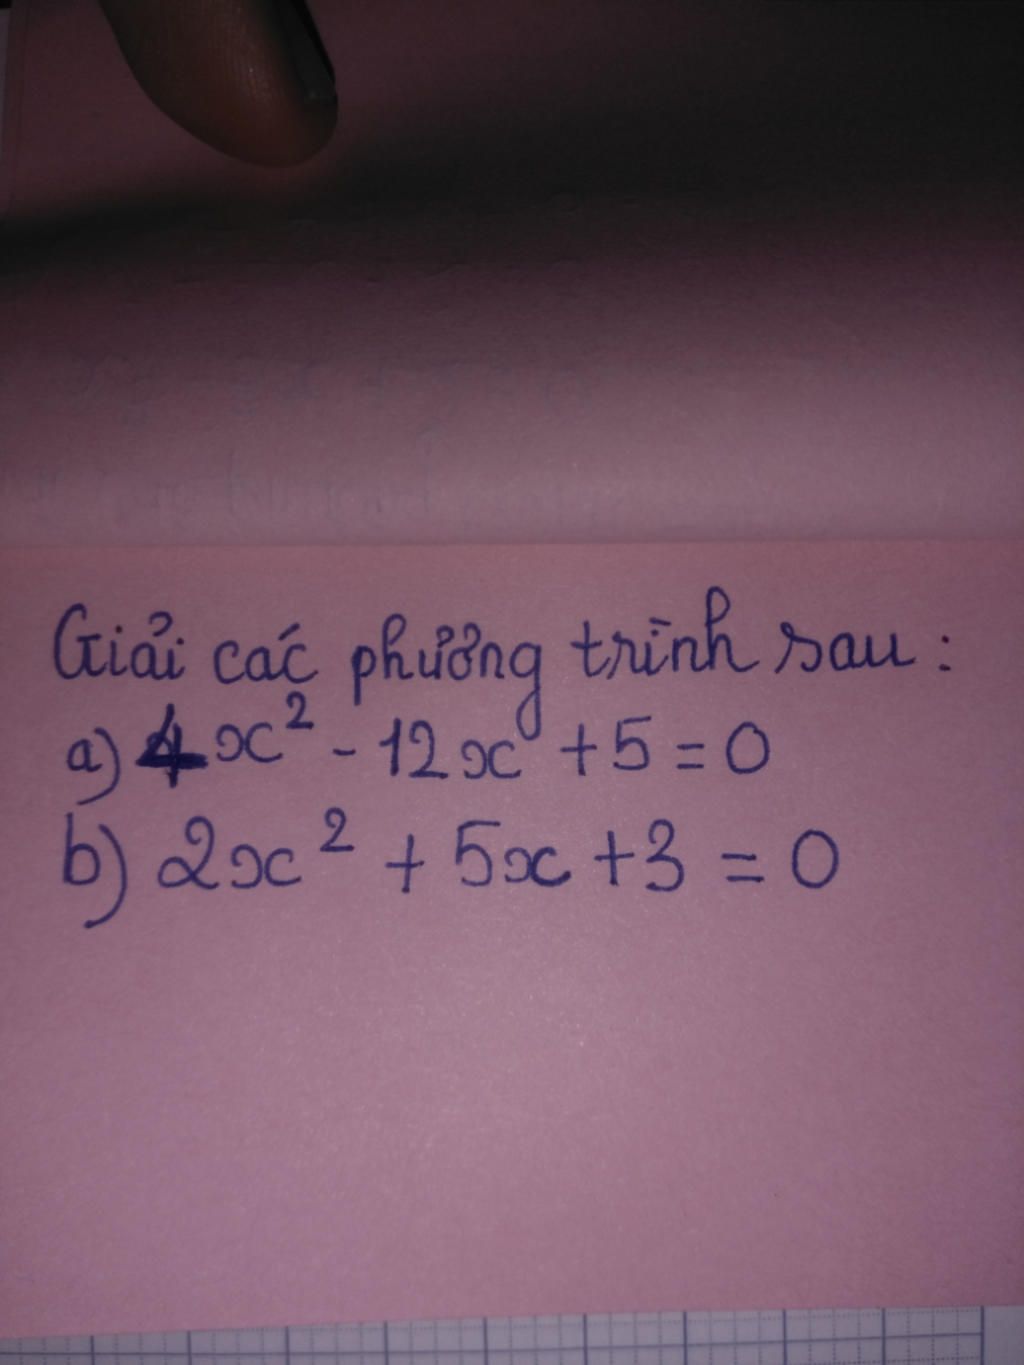 Giải các phương trình sau:
a) 4x² - 12x + 5 = 0
b) 2x² + 5x + 3 = 0